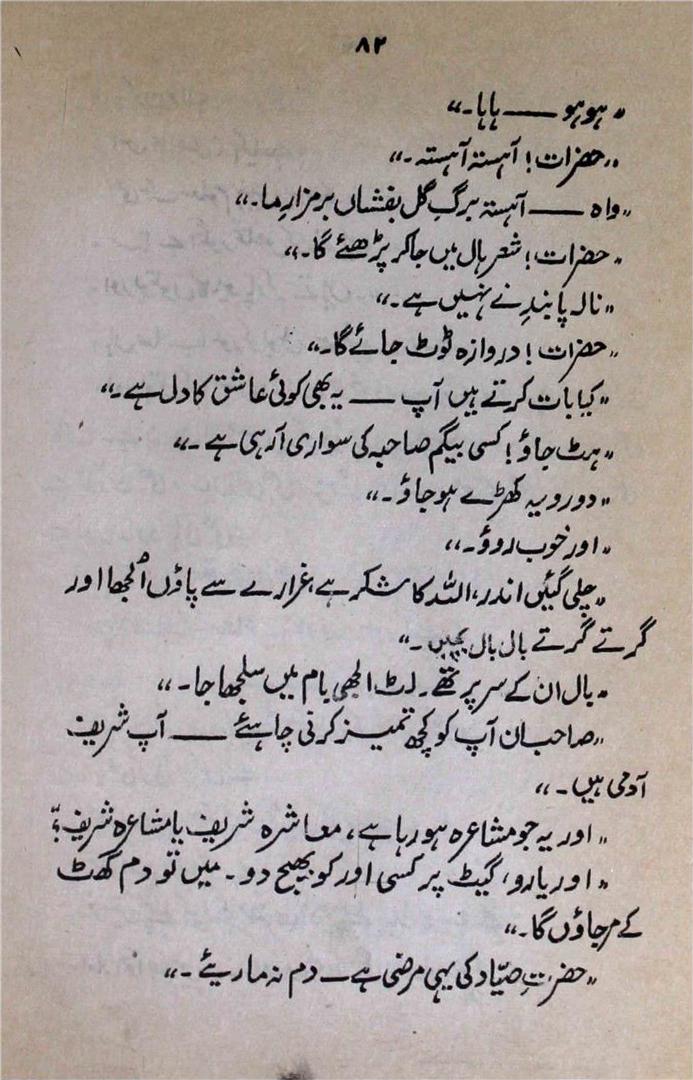 ۸۲
"ہو ہو ــــ ہاہا۔"
"حضرات! آہستہ آہستہ۔"
"واہ ــــ آہستہ برگِ گل بفشاں بر مزارِ ما۔"
"حضرات! شعر ہال میں جا کر پڑھئے گا۔"
"نالہ پابندِ نے نہیں ہے۔"
"حضرات! دروازہ ٹوٹ جائے گا۔"
"کیا بات کرتے ہیں آپ ــــ یہ بھی کوئی عاشق کا دل ہے۔"
"ہٹ جاؤ! کسی بیگم صاحبہ کی سواری آرہی ہے۔"
"دو رویہ کھڑے ہو جاؤ۔"
"اور خوب روؤ۔"
"چلی گئیں اندر، اللہ کا شکر ہے، غرارے سے پاؤں اُلجھا اور
گرتے گرتے بال بال بچیں۔"
"بال ان کے سر پر تھے۔ لٹ الجھی بام میں سلجھا جا۔"
"صاحبان آپ کو کچھ تمیز کرنی چاہئے ــــ آپ شریف
آدمی ہیں۔"
"اور یہ جو مشاعرہ ہو رہا ہے، معاشرہ شریف یا مشاعرہ شریف؟"
"اور یارو، گیٹ پر کسی اور کو بھیج دو۔ میں تو دم گھٹ
کے مر جاؤں گا۔"
"حضرتِ صیّاد کی یہی مرضی ہے ــ دم نہ ماریئے۔"